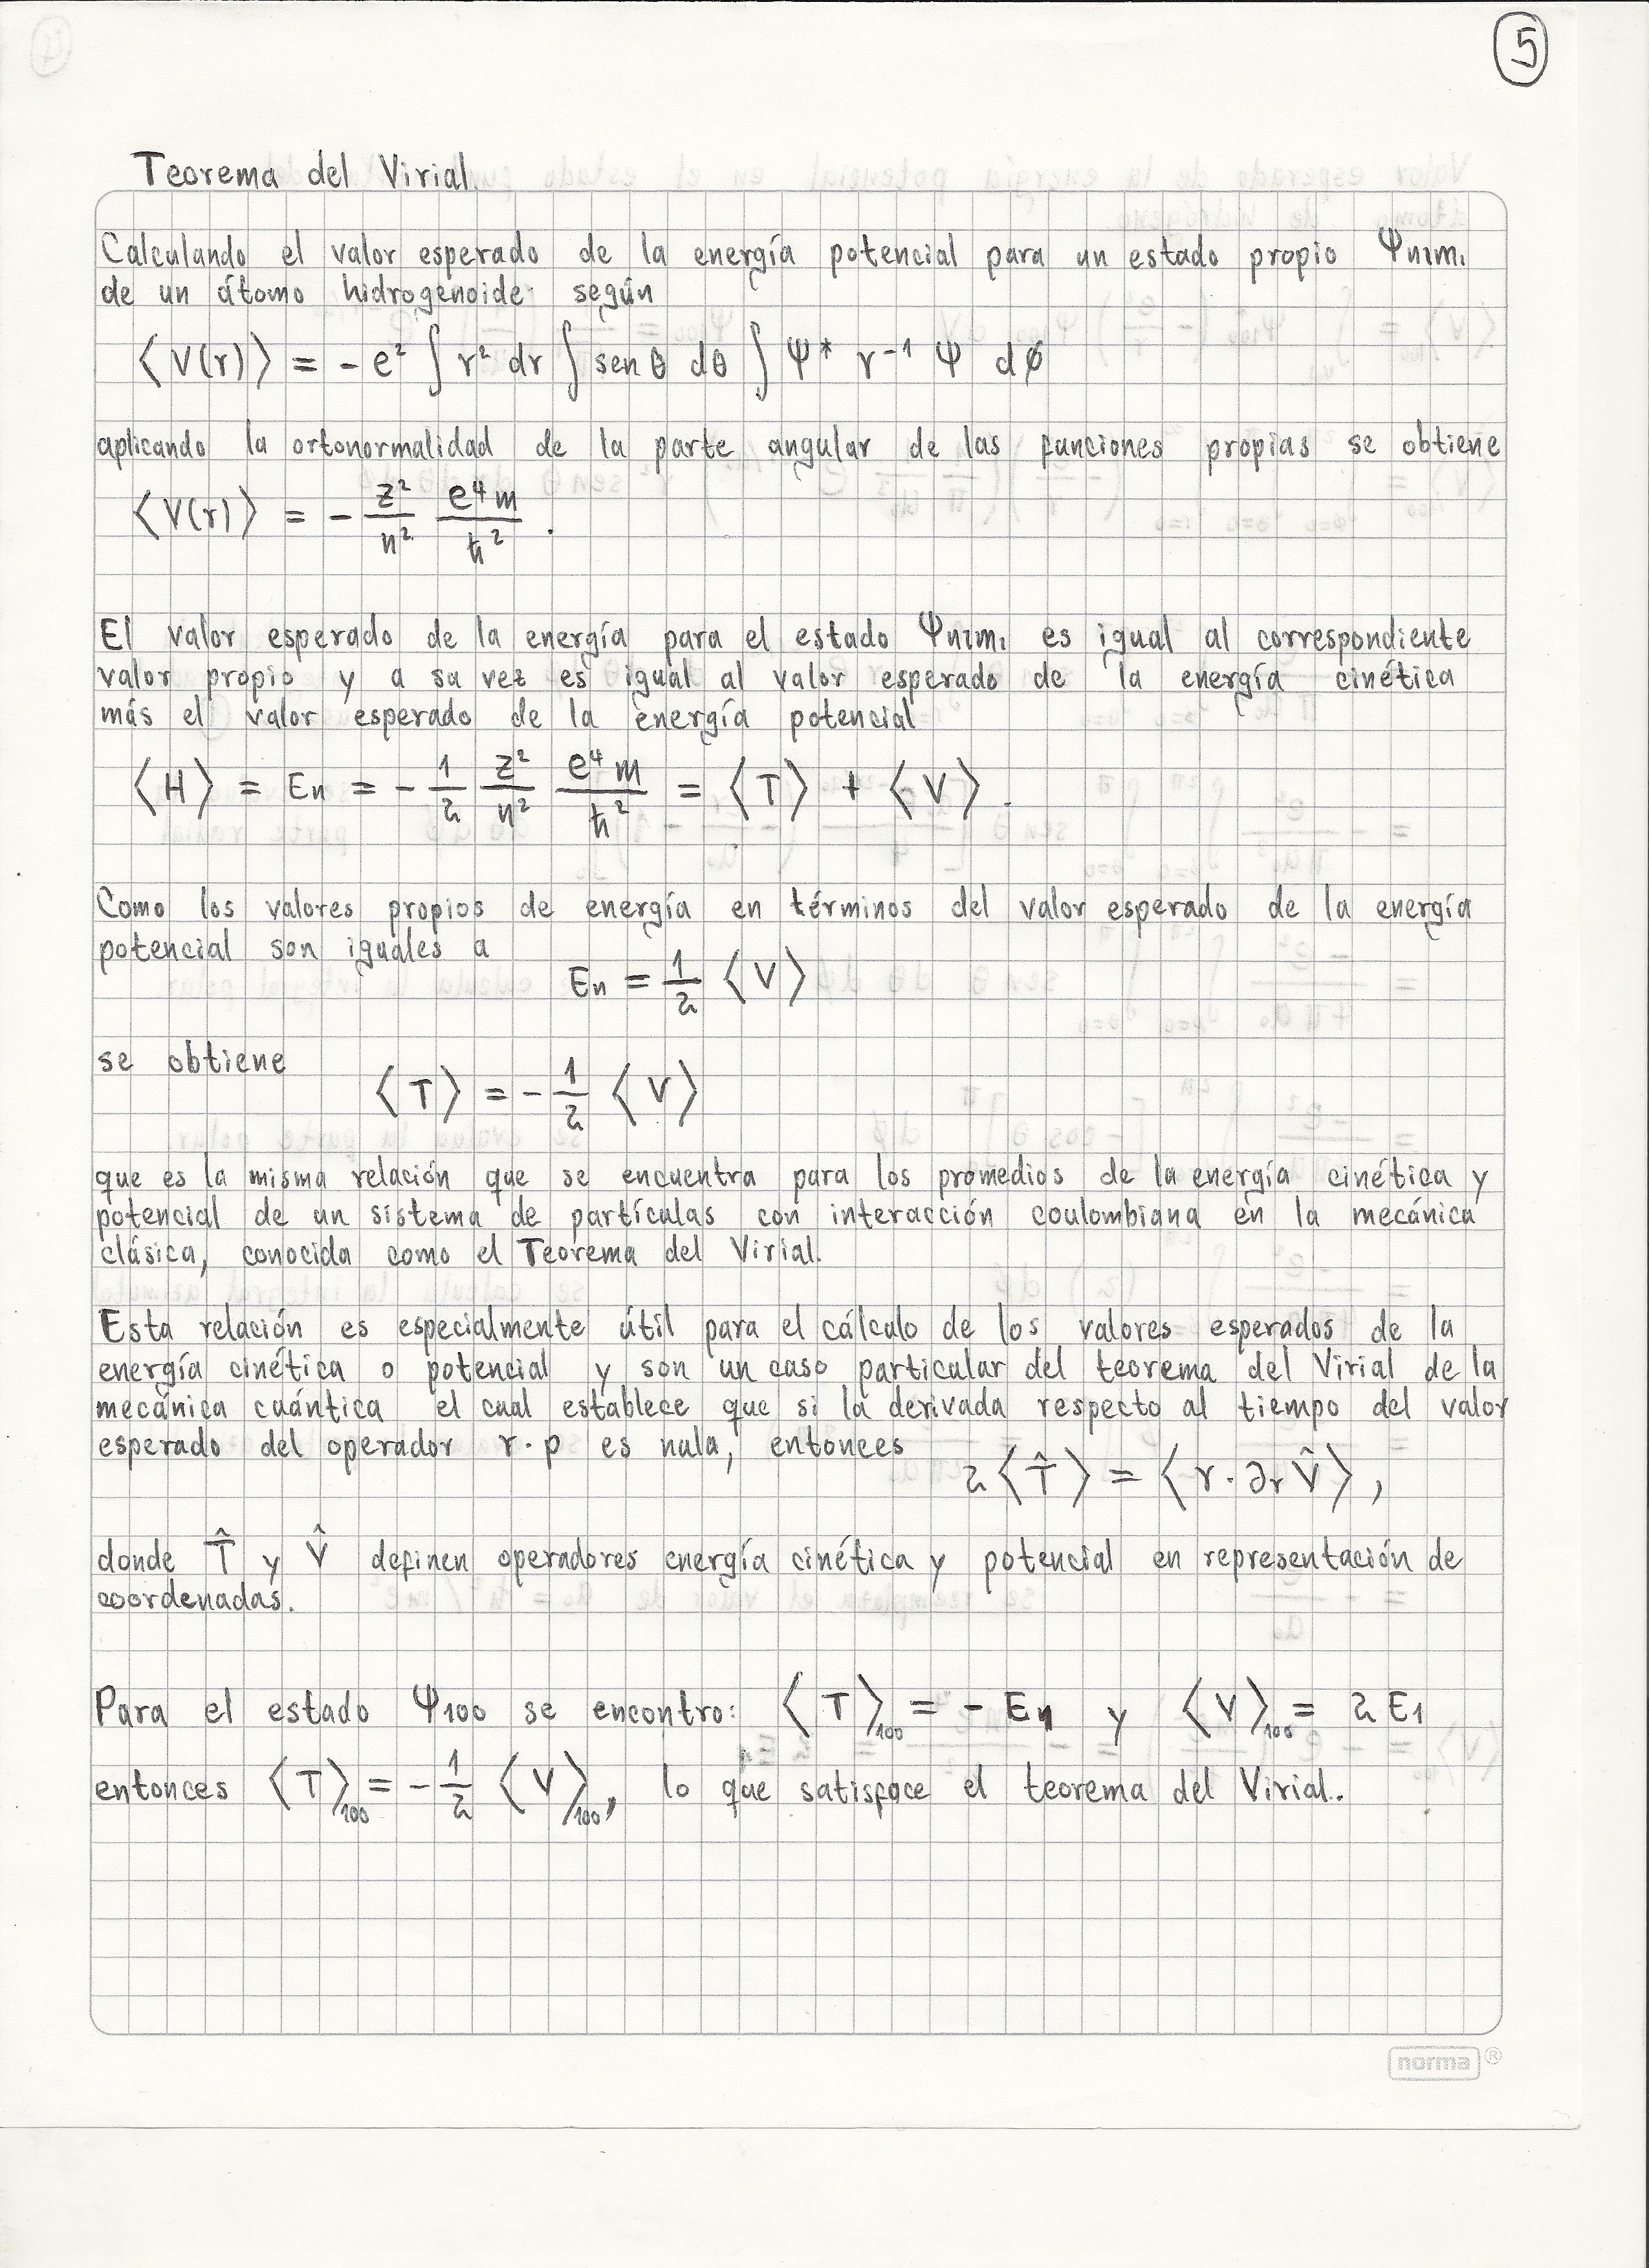 5
Teorema del Virial.
Calculando el valor esperado de la energía potencial para un estado propio Ψnlm,
de un átomo hidrogenoide según
⟨V(r)⟩ = - e² ∫ r² dr ∫ sen θ dθ ∫ Ψ* r⁻¹ Ψ dφ
aplicando la ortonormalidad de la parte angular de las funciones propias se obtiene
⟨V(r)⟩ = - z²/n² e⁴m/ħ² .
El valor esperado de la energía para el estado Ψnlm, es igual al correspondiente
valor propio y a su vez es igual al valor esperado de la energía cinética
más el valor esperado de la energía potencial
⟨H⟩ = En = - 1/2 z²/n² e⁴m/ħ² = ⟨T⟩ + ⟨V⟩.
Como los valores propios de energía en términos del valor esperado de la energía
potencial son iguales a
En = 1/2 ⟨V⟩
se obtiene
⟨T⟩ = - 1/2 ⟨V⟩
que es la misma relación que se encuentra para los promedios de la energía cinética y
potencial de un sistema de partículas con interacción coulombiana en la mecánica
clásica, conocida como el Teorema del Virial.
Esta relación es especialmente útil para el cálculo de los valores esperados de la
energía cinética o potencial y son un caso particular del teorema del Virial de la
mecánica cuántica el cual establece que si la derivada respecto al tiempo del valor
esperado del operador r · p es nula, entonces
2⟨T̂⟩ = ⟨r · ∂r V̂⟩,
donde T̂ y V̂ definen operadores energía cinética y potencial en representación de
coordenadas.
Para el estado Ψ100 se encontro: ⟨T⟩100 = - En y ⟨V⟩100 = 2 E1
entonces ⟨T⟩100 = - 1/2 ⟨V⟩100, lo que satisface el teorema del Virial.
norma®